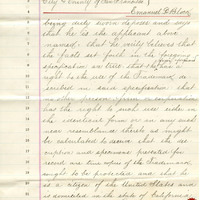 City & County of San Francisco }
being duly sworn deposes and says
that he is the applicant above
named; that he verily believes that
the facts set forth in the foregoing
specification are true; that he has a
right to the use of the Trademark de-
scribed in said specification that
no other person firm or corporation
has the right to such use either in
the identical form or in any such
near resemblance thereto as might
be calculated to deceive that the de-
scription and specimens presented for
record are true copies of the Trademark
sought to be protected and that he
is a citizen of the United States and
is domiciled in the State of California